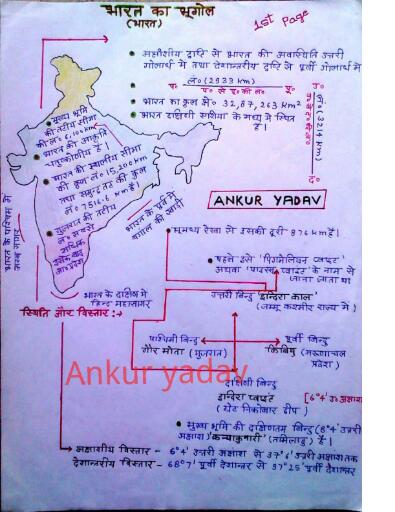 भारत का भूगोल
(भारत)
1st Page
अक्षांशीय दृष्टि से भारत की अवस्थिति उत्तरी
गोलार्ध में तथा देशान्तरीय दृष्टि से पूर्वी गोलार्ध में
प० ल० (2933 km) पू०
प० से पू० की ल०
भारत का कुल क्षे० 32,87,263 km²
भारत दक्षिणी एशिया के मध्य में स्थित
है।
उ०
ल० (3214 km)
द०
मुख्य भूमि
की तटीय सीमा
की ल० 6,100 km
भारत की आकृति
चतुष्कोणीय है।
भारत की स्थलीय सीमा
की कुल ल० 15,200 km
तथा समुद्र तट की कुल
ल० 7516.6 km है।
गुजरात की तटीय
ल० सबसे
अधिक
उसके बाद
आ० प्रदेश
भारत के पूर्व में
बंगाल की खाड़ी
भारत के पश्चिम में
अरब सागर
भारत के दक्षिण में
हिन्द महासागर
ANKUR YADAV
भूमध्य रेखा से इसकी दूरी 876 km है।
पहले इसे 'पिग्मेलियन प्वाइंट'
अथवा 'पारसन प्वाइंट' के नाम से
जाना जाता था
स्थिति और विस्तार :→
उत्तरी बिन्दु 'इन्दिरा कॉल'
(जम्मू कश्मीर राज्य में)
पश्चिमी बिन्दु
गौर मोता (गुजरात)
पूर्वी बिन्दु
किबिथु (अरूणाचल
प्रदेश)
Ankur yadav
दक्षिणी बिन्दु
इन्दिरा प्वाइंट [6°4' उ० अक्षांश
(ग्रेट निकोबार द्वीप)
मुख्य भूमि की दक्षिणतम बिन्दु (8°4' उत्तरी
अक्षांश) 'कन्याकुमारी' (तमिलनाडु) है।
अक्षांशीय विस्तार - 6°4' उत्तरी अक्षांश से 37°6' उत्तरी अक्षांश तक
देशान्तरीय विस्तार - 68°7' पूर्वी देशान्तर से 97°25' पूर्वी देशान्तर